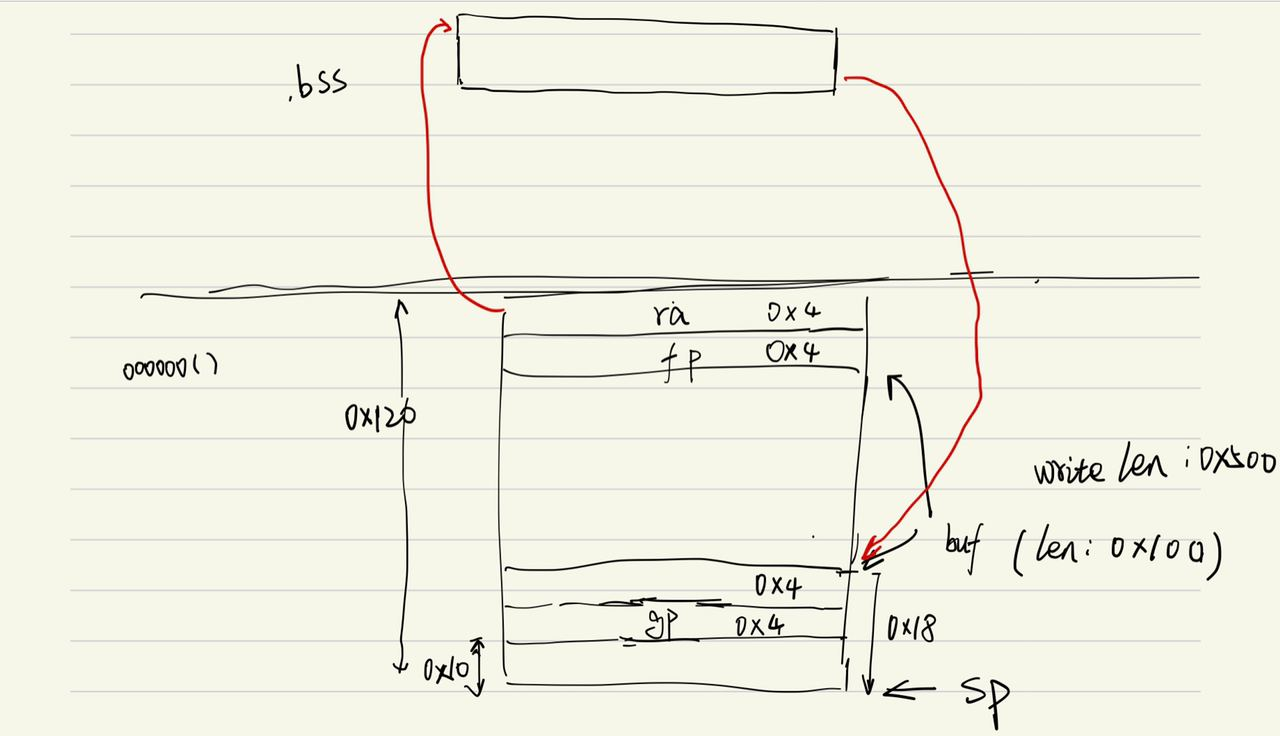 .bss
ra 0x4
fp 0x4
000000()
0x120
write len : 0x500
buf (len: 0x100)
0x4
gp 0x4
0x18
0x10
sp